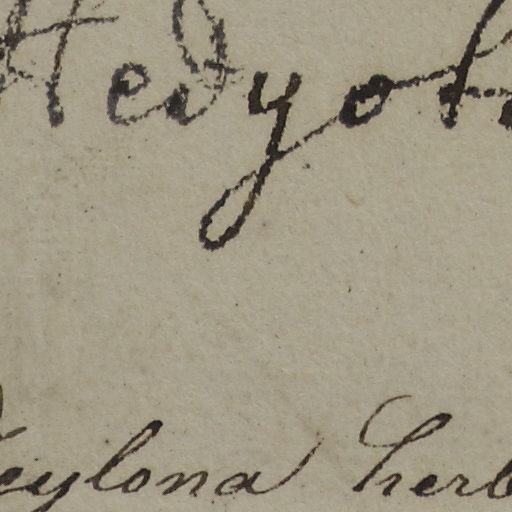 Hedyot
eylona herb